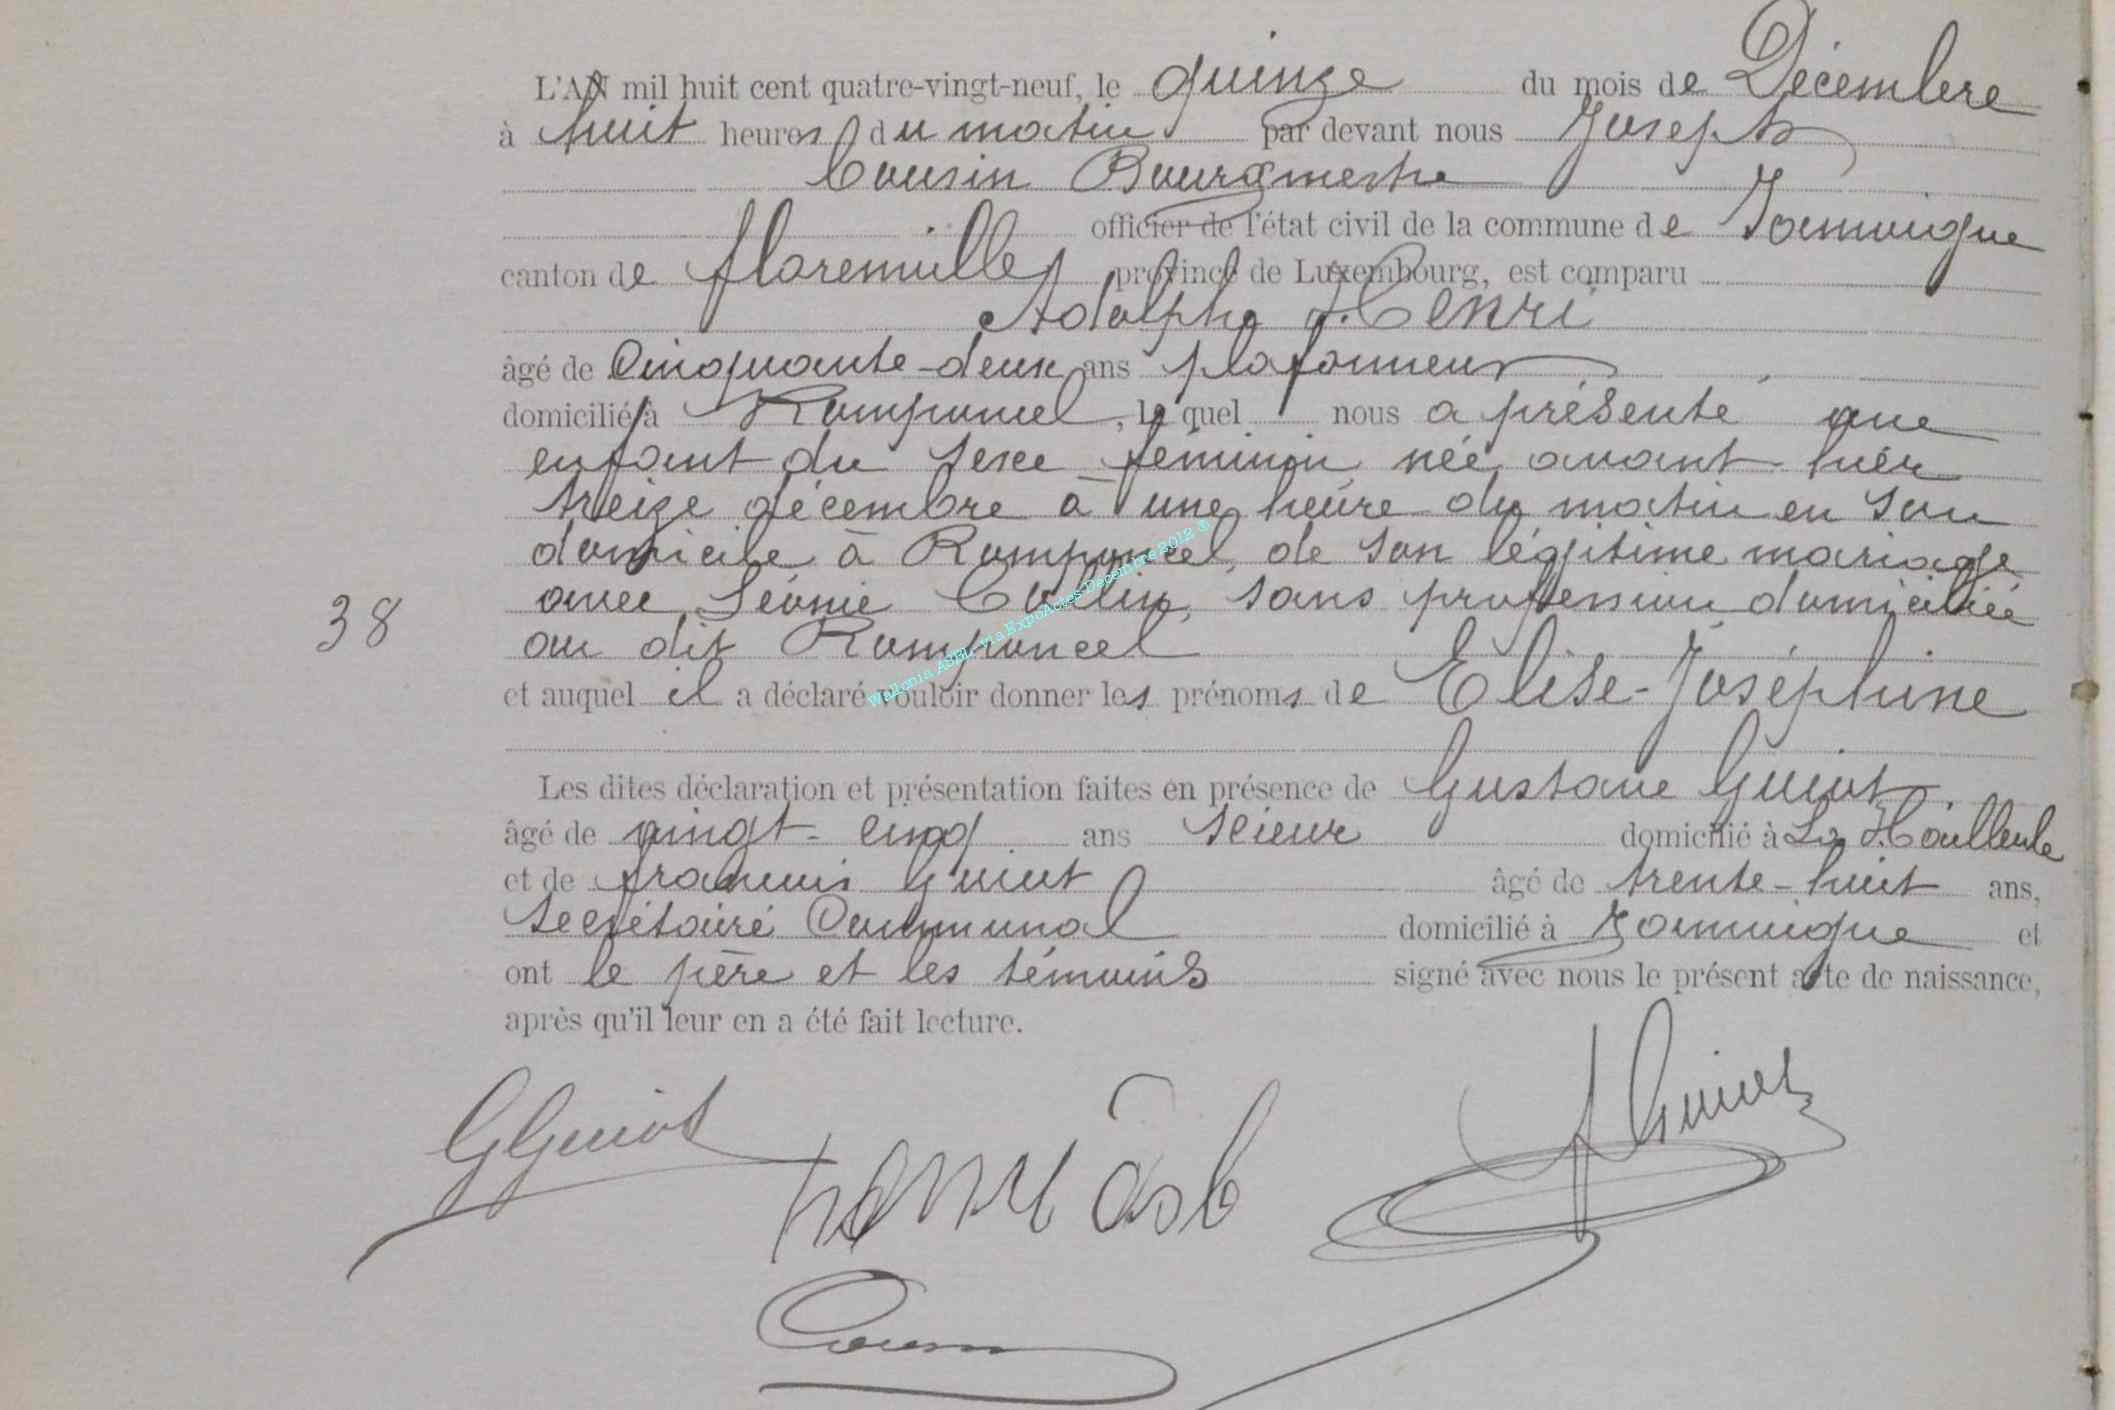 L'AN mil huit cent quatre-vingt-neuf, le quinze du mois de Décembre
à huit heures du matin par devant nous Joseph
Cousin Bourgmestre
officier de l'état civil de la commune de Jamoigne
canton de florenville province de Luxembourg, est comparu
Adolphe Henri
âgé de Cinquante-deux ans plafonneur
domicilié à Romponcel, le quel nous a présenté une
enfant du sexe féminin née avant-hier
treize décembre à une heure du matin en son
domicile à Romponcel, de son légitime mariage
avec Léonie Collin, sans profession domiciliée
au dit Romponcel
38
et auquel il a déclaré vouloir donner les prénoms de Elise-Joséphine
Wallonia ASBL via ExpoActes Décembre 2012 ®
Les dites déclaration et présentation faites en présence de Gustave Guiot
âgé de vingt-cinq ans scieur domicilié à La Houlleule
et de françois Guiot âgé de trente-huit ans,
Secrétaire Communal domicilié à Jamoigne et
ont le père et les témoins signé avec nous le présent acte de naissance,
après qu'il leur en a été fait lecture.
GGuiot
f Guiot
henry
Cousin